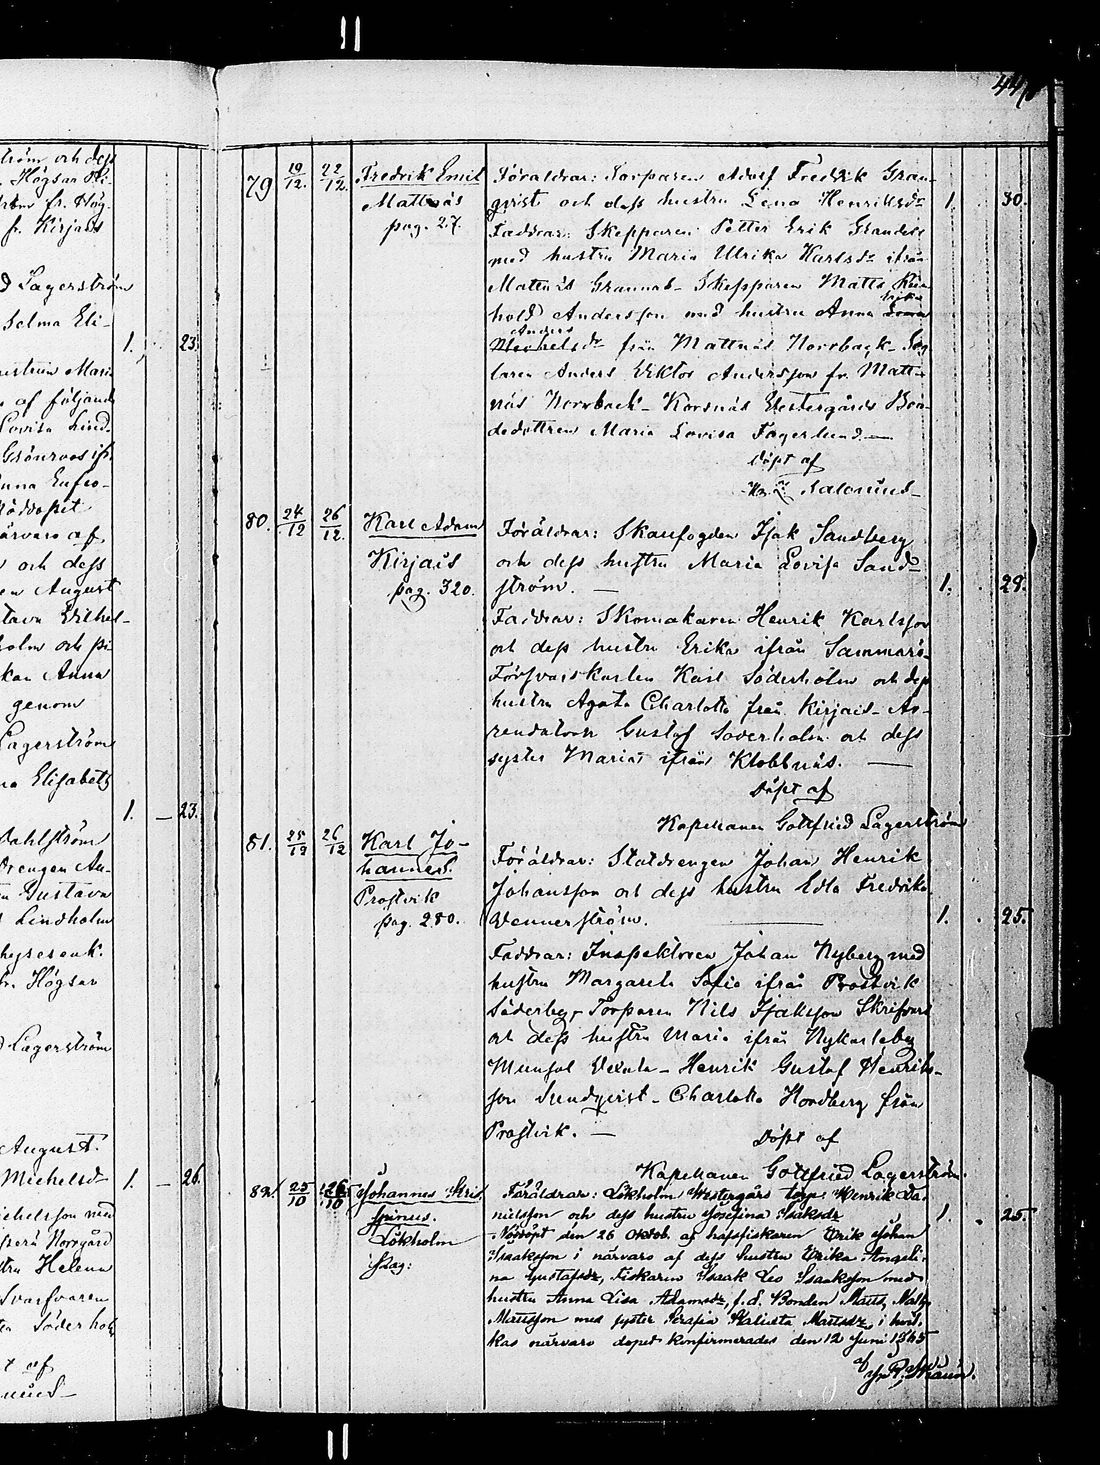 ström och dess
Högsar
fr. Kirjais
Lagerström
Selma Eli-
1. 23.
hustrun Maria
af följande
Lovisa Lind-
Grönroos
Anna Eufro-
Nöddöpst
närvaro af
och dess
August
Gustava Vilhel-
holm och pi-
Anna
genom
Lagerström
Elisabeth
1. — 23.
Dahlström
Drengen An-
Gustava
Lindholm
fr. Högsar
Lagerström
August.
Michelsdr 1. — 26.
Michelsson med
Norrgård
Helena
Svarfvaren
Söderholm
af
44
79 19/12. 22/12. Fredrik Emil
Mattnäs
pag. 27.
Föräldrar: Torparen Adolf Fredrik Gran-
qvist och dess hustru Lena Henriksdr 1. 30.
Faddrar: Skepparen Petter Erik Grandell
med hustru Maria Ulrika Karlsdr ifrån
Mattnäs Grannas – Skepparen Matts Rein
hold Andersson med hustru Anna
Anders
från Mattnäs Norrback – Seg
laren Anders Viktor Andersson fr. Matt-
näs Norrback – Korsnäs Vestergårds Bon-
dedottren Maria Lovisa Fagerlund. —
Döpt af
80. 24/12 26/12. Karl Adam
Kirjais
pag. 320.
Föräldrar: Skaufogden Isak Sandberg
och dess hustru Maria Lovisa Sand-
ström. — 1. 29.
Faddrar: Skomakaren Henrik Karlsson
och dess hustru Erika ifrån Sammarö –
Försvarskarlen Karl Söderholm och dess
hustru Agata Charlotta från Kirjais – Ar-
rendatorn Gustaf Söderholm och dess
syster Maria ifrån Klobbnäs. —
Döpt af
Kapellanen Gottfried Lagerström
81. 25/12 26/12 Karl Jo-
hannes.
Prostvik
pag. 280.
Föräldrar: Statdrengen Johan Henrik
Johansson och dess hustru Edla Fredrika
Vennerström. — 1. 25.
Faddrar: Inspektoren Johan Nyberg med
hustru Margareta Sofia ifrån Prostvik
Söderby – Torparen Nils Isaksson Skrifvars
och dess hustru Maria ifrån Nykarleby
Munsala – Henrik Gustaf Henriks-
son Sundqvist – Charlotta Nordberg från
Prostvik. —
Döpt af
Kapellanen Gottfried Lagerström.
82. 25/10 26/10 Johannes Kris
pinus.
Lökholm
pag:
Föräldrar: Lökholm Westergårds torp. Henrik Da-
nielsson och dess hustru Josefina Isaksdr 1. 25.
Nöddöpt den 26 Oktob. af hafsfiskaren Erik Johan
Isaaksson i närvaro af dess hustru Erika Angeli-
na Gustafsdr, Fiskaren Isaak Leo Isaaksson med
hustru Anna Lisa Adamsdr, f.d. Bonden Matts
Mattsson med syster Serafia Kalista Mattsdr, i hvil-
kas närvaro dopet konfirmerades den 12 Juni
af